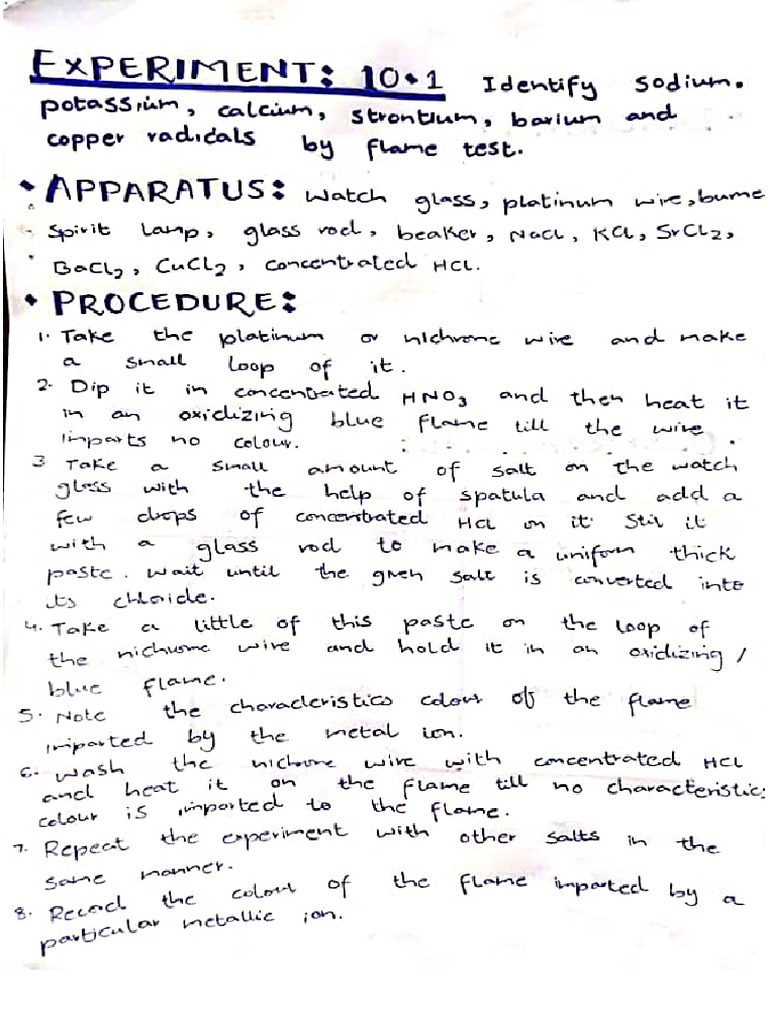 EXPERIMENT: 10.1 Identify sodium,
potassium, calcium, strontium, barium and
copper radicals by flame test.
• APPARATUS: Watch glass, platinum wire, burne
Spirit lamp, glass rod, beaker, NaCl, KCl, SrCl2,
BaCl2, CuCl2, concentrated HCl.
• PROCEDURE:
1. Take the platinum or nichrome wire and make
a small loop of it.
2. Dip it in concentrated HNO3 and then heat it
in an oxidizing blue flame till the wire
imparts no colour.
3 Take a small amount of salt on the watch
glass with the help of spatula and add a
few drops of concentrated HCl on it. Stir it
with a glass rod to make a uniform thick
paste. Wait until the given salt is converted into
its chloride.
4. Take a little of this paste on the loop of
the nichrome wire and hold it in an oxidizing /
blue flame.
5. Note the characteristics colour of the flame
imparted by the metal ion.
6. Wash the nichrome wire with concentrated HCl
and heat it on the flame till no characteristics
colour is imparted to the flame.
7. Repeat the experiment with other salts in the
same manner.
8. Record the colour of the flame imparted by a
particular metallic ion.